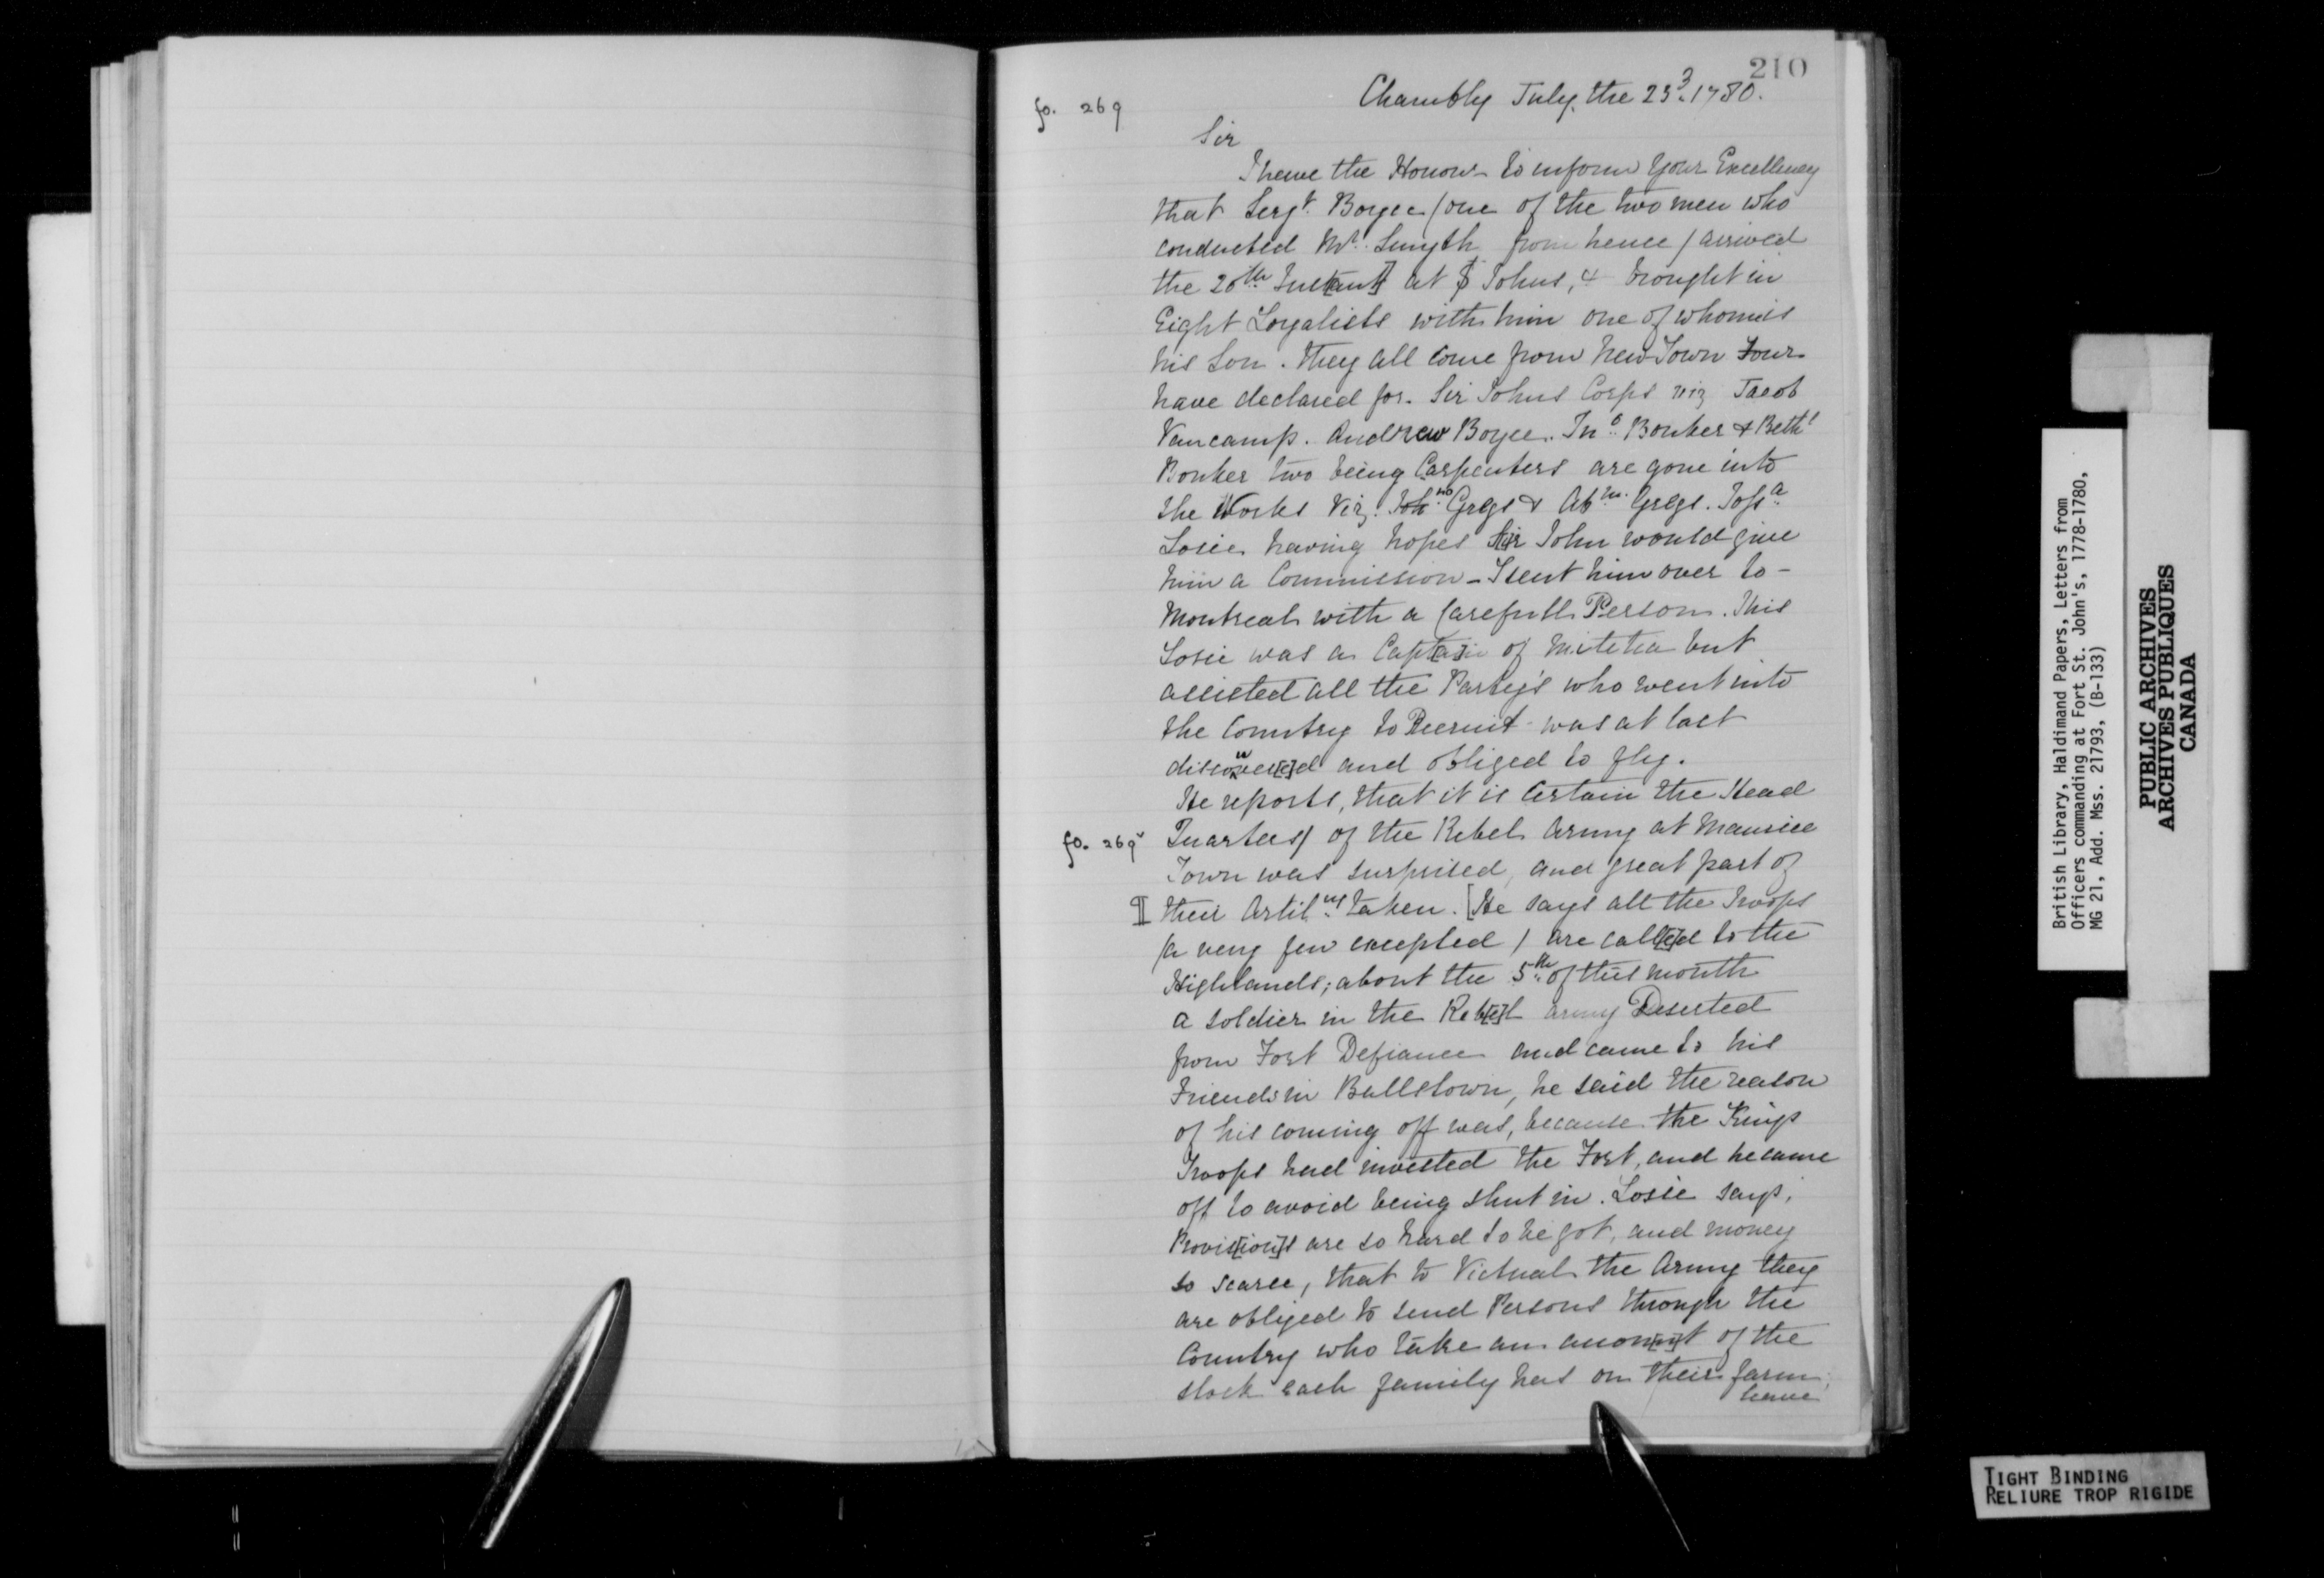 210
Chambly July, the 23^3. 1780.
fo. 269
Sir
I have the Honour to inform Your Excellency
that Serg^t. Boyce (one of the two men who
conducted M^r. Smyth from hence) arrived
the 20^th Inst[ant] at S^t Johns, & brought in
Eight Loyalists with him one of whom is
his Son. they all come from New Town Four
have declared for Sir Johns Corps viz Jacob
Vancamp. Andrew Boyce. Jn^o. Bonker & Beth^l
Bonker two being Carpenters are gone into
the Works Viz. Joh^no Gregs & Ab^m. Gregs. Joss^a.
Losie having hopes Sir John would give
him a Commission - I sent him over to -
Montreal with a Carefull Person. This
Losie was a Capt[a]in of Militia but
assisted all the Party's who went into
the Country to Recruit - was at last
discover[e]d and obliged to fly.
He reports, that it is Certain the Head
fo. 269^v Quarters) of the Rebel Army at Maurice
Town was surprised, and great part of
¶ their Artil^ry. taken. [He says all the Troops
(a very few excepted) are call[e]d to the
Highlands; about the 5^th of this month
a soldier in the Reb[e]l army Deserted
from Fort Defiance and came to his
Friends in Ballstown, he said the reason
of his coming off was, because the Kings
Troops had invested the Fort, and he came
off to avoid being shut in. Losie says,
Provis[ion]s are so hard to be got, and money
so scarce, that to Victual the Army they
are obliged to send Persons through the
Country who take an amo[un]t of the
stock each family has on their farm,
leave
British Library, Haldimand Papers, Letters from
Officers commanding at Fort St. John's, 1778-1780,
MG 21, Add. Mss. 21793, (B-133)
PUBLIC ARCHIVES
ARCHIVES PUBLIQUES
CANADA
TIGHT BINDING
RELIURE TROP RIGIDE